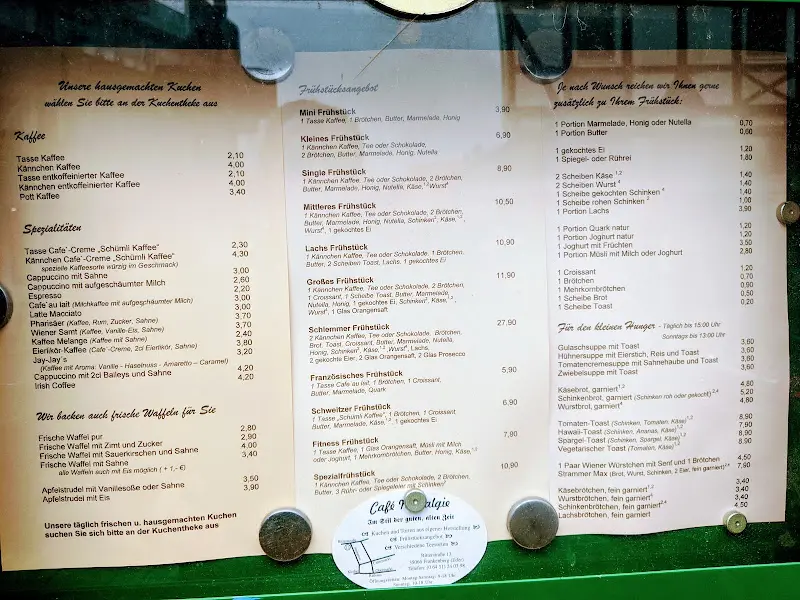 Unsere hausgemachten Kuchen
wählen Sie bitte an der Kuchentheke aus
Kaffee
Tasse Kaffee 2,10
Kännchen Kaffee 4,00
Tasse entkoffeinierter Kaffee 2,10
Kännchen entkoffeinierter Kaffee 4,00
Pott Kaffee 3,40
Spezialitäten
Tasse Cafe´-Creme „Schümli Kaffee“ 2,30
Kännchen Cafe´-Creme „Schümli Kaffee“ 4,30
spezielle Kaffeesorte würzig im Geschmack)
Cappuccino mit Sahne 3,00
Cappuccino mit aufgeschäumter Milch 2,60
Espresso 2,20
Cafe´au lait (Milchkaffee mit aufgeschäumter Milch) 3,00
Latte Macciato 3,70
Pharisäer (Kaffee, Rum, Zucker, Sahne) 3,70
Wiener Samt (Kaffee, Vanille-Eis, Sahne) 2,40
Kaffee Melange (Kaffee mit Sahne) 3,80
Eierlikör-Kaffee (Cafe´-Creme, 2cl Eierlikör, Sahne) 3,20
Jay-Jay´s
(Kaffee mit Aroma: Vanille - Haselnuss - Amaretto – Caramel)
Cappuccino mit 2cl Baileys und Sahne 4,20
Irish Coffee 4,20
Wir backen auch frische Waffeln für Sie
Frische Waffel pur 2,80
Frische Waffel mit Zimt und Zucker 2,90
Frische Waffel mit Sauerkirschen und Sahne 4,00
Frische Waffel mit Sahne 3,40
alle Waffeln auch mit Eis möglich ( + 1,- €)
Apfelstrudel mit Vanillesoße oder Sahne 3,50
Apfelstrudel mit Eis 3,90
Unsere täglich frischen u. hausgemachten Kuchen
suchen Sie sich bitte an der Kuchentheke aus
Frühstücksangebot
Mini Frühstück 3,90
1 Tasse Kaffee, 1 Brötchen, Butter, Marmelade, Honig
Kleines Frühstück 6,90
1 Kännchen Kaffee, Tee oder Schokolade,
2 Brötchen, Butter, Marmelade, Honig, Nutella
Single Frühstück 8,90
1 Kännchen Kaffee, Tee oder Schokolade, 2 Brötchen,
Butter, Marmelade, Honig, Nutella, Käse,1,2Wurst4
Mittleres Frühstück 10,50
1 Kännchen Kaffee, Tee oder Schokolade, 2 Brötchen,
Butter, Marmelade, Honig, Nutella, Schinken2, Käse,1,2,
Wurst4, 1 gekochtes Ei
Lachs Frühstück 10,90
1 Kännchen Kaffee, Tee oder Schokolade, 1 Brötchen,
Butter, 2 Scheiben Toast, Lachs, 1 gekochtes Ei
Großes Frühstück 11,90
1 Kännchen Kaffee, Tee oder Schokolade, 2 Brötchen,
1 Croissant, 1 Scheibe Toast, Butter, Marmelade,
Nutella, Honig, 1 gekochtes Ei, Schinken2, Käse,1,2,
Wurst4, 1 Glas Orangensaft
Schlemmer Frühstück 27,90
2 Kännchen Kaffee, Tee oder Schokolade, 2 Brötchen,
Brot, Toast, Croissant, Butter, Marmelade, Nutella,
Honig, Schinken2, Käse,1,2, Wurst4, Lachs,
2 gekochte Eier, 2 Glas Orangensaft, 2 Glas Prosecco
Französisches Frühstück 5,90
1 Tasse Cafe au lait, 1 Brötchen, 1 Croissant,
Butter, Marmelade, Quark
Schweitzer Frühstück 6,90
1 Tasse „Schümli Kaffee“, 1 Brötchen, 1 Croissant,
Butter, Marmelade, Käse,1,2, 1 gekochtes Ei
Fitness Frühstück 7,90
1 Tasse Kaffee, 1 Glas Orangensaft, Müsli mit Milch
oder Joghurt, 1 Mehrkornbrötchen, Butter, Honig, Käse,1,2
Spezialfrühstück 10,90
1 Kännchen Kaffee, Tee oder Schokolade, 2 Brötchen,
Butter, 3 Rühr- oder Spiegeleier mit Schinken2
Je nach Wunsch reichen wir Ihnen gerne
zusätzlich zu Ihrem Frühstück:
1 Portion Marmelade, Honig oder Nutella 0,70
1 Portion Butter 0,60
1 gekochtes Ei 1,20
1 Spiegel- oder Rührei 1,80
2 Scheiben Käse 1,2 1,40
2 Scheiben Wurst 4 1,40
1 Scheibe gekochten Schinken 2 1,40
1 Scheibe rohen Schinken 2 1,00
1 Portion Lachs 3,90
1 Portion Quark natur 1,20
1 Portion Joghurt natur 1,20
1 Joghurt mit Früchten 3,50
1 Portion Müsli mit Milch oder Joghurt 2,80
1 Croissant 1,20
1 Brötchen 0,70
1 Mehrkornbrötchen 0,90
1 Scheibe Brot 0,50
1 Scheibe Toast 0,20
Für den kleinen Hunger - Täglich bis 15:00 Uhr
Sonntags bis 13:00 Uhr
Gulaschsuppe mit Toast 3,60
Hühnersuppe mit Eierstich, Reis und Toast 3,60
Tomatencremesuppe mit Sahnehaube und Toast 3,60
Zwiebelsuppe mit Toast 3,60
Käsebrot, garniert1,2 4,80
Schinkenbrot, garniert (Schinken roh oder gekocht)2,4 5,20
Wurstbrot, garniert4 4,80
Tomaten-Toast (Schinken, Tomaten, Käse)1,2 8,90
Hawaii-Toast (Schinken, Ananas, Käse)1,2 8,90
Spargel-Toast (Schinken, Spargel, Käse)1,2 8,90
Vegetarischer Toast (Tomaten, Käse)1,2 8,90
1 Paar Wiener Würstchen mit Senf und 1 Brötchen 4,50
Strammer Max (Brot, Wurst, Schinken, 2 Eier, fein garniert)2,4 7,90
Käsebrötchen, fein garniert1,2 3,40
Wurstbrötchen, fein garniert4 3,40
Schinkenbrötchen, fein garniert2,4 3,40
Lachsbrötchen, fein garniert 4,50
Café
Im Stil der guten, alten Zeit
Kuchen und Torten aus eigener Herstellung
Frühstücksangebot
Verschiedene Teesorten